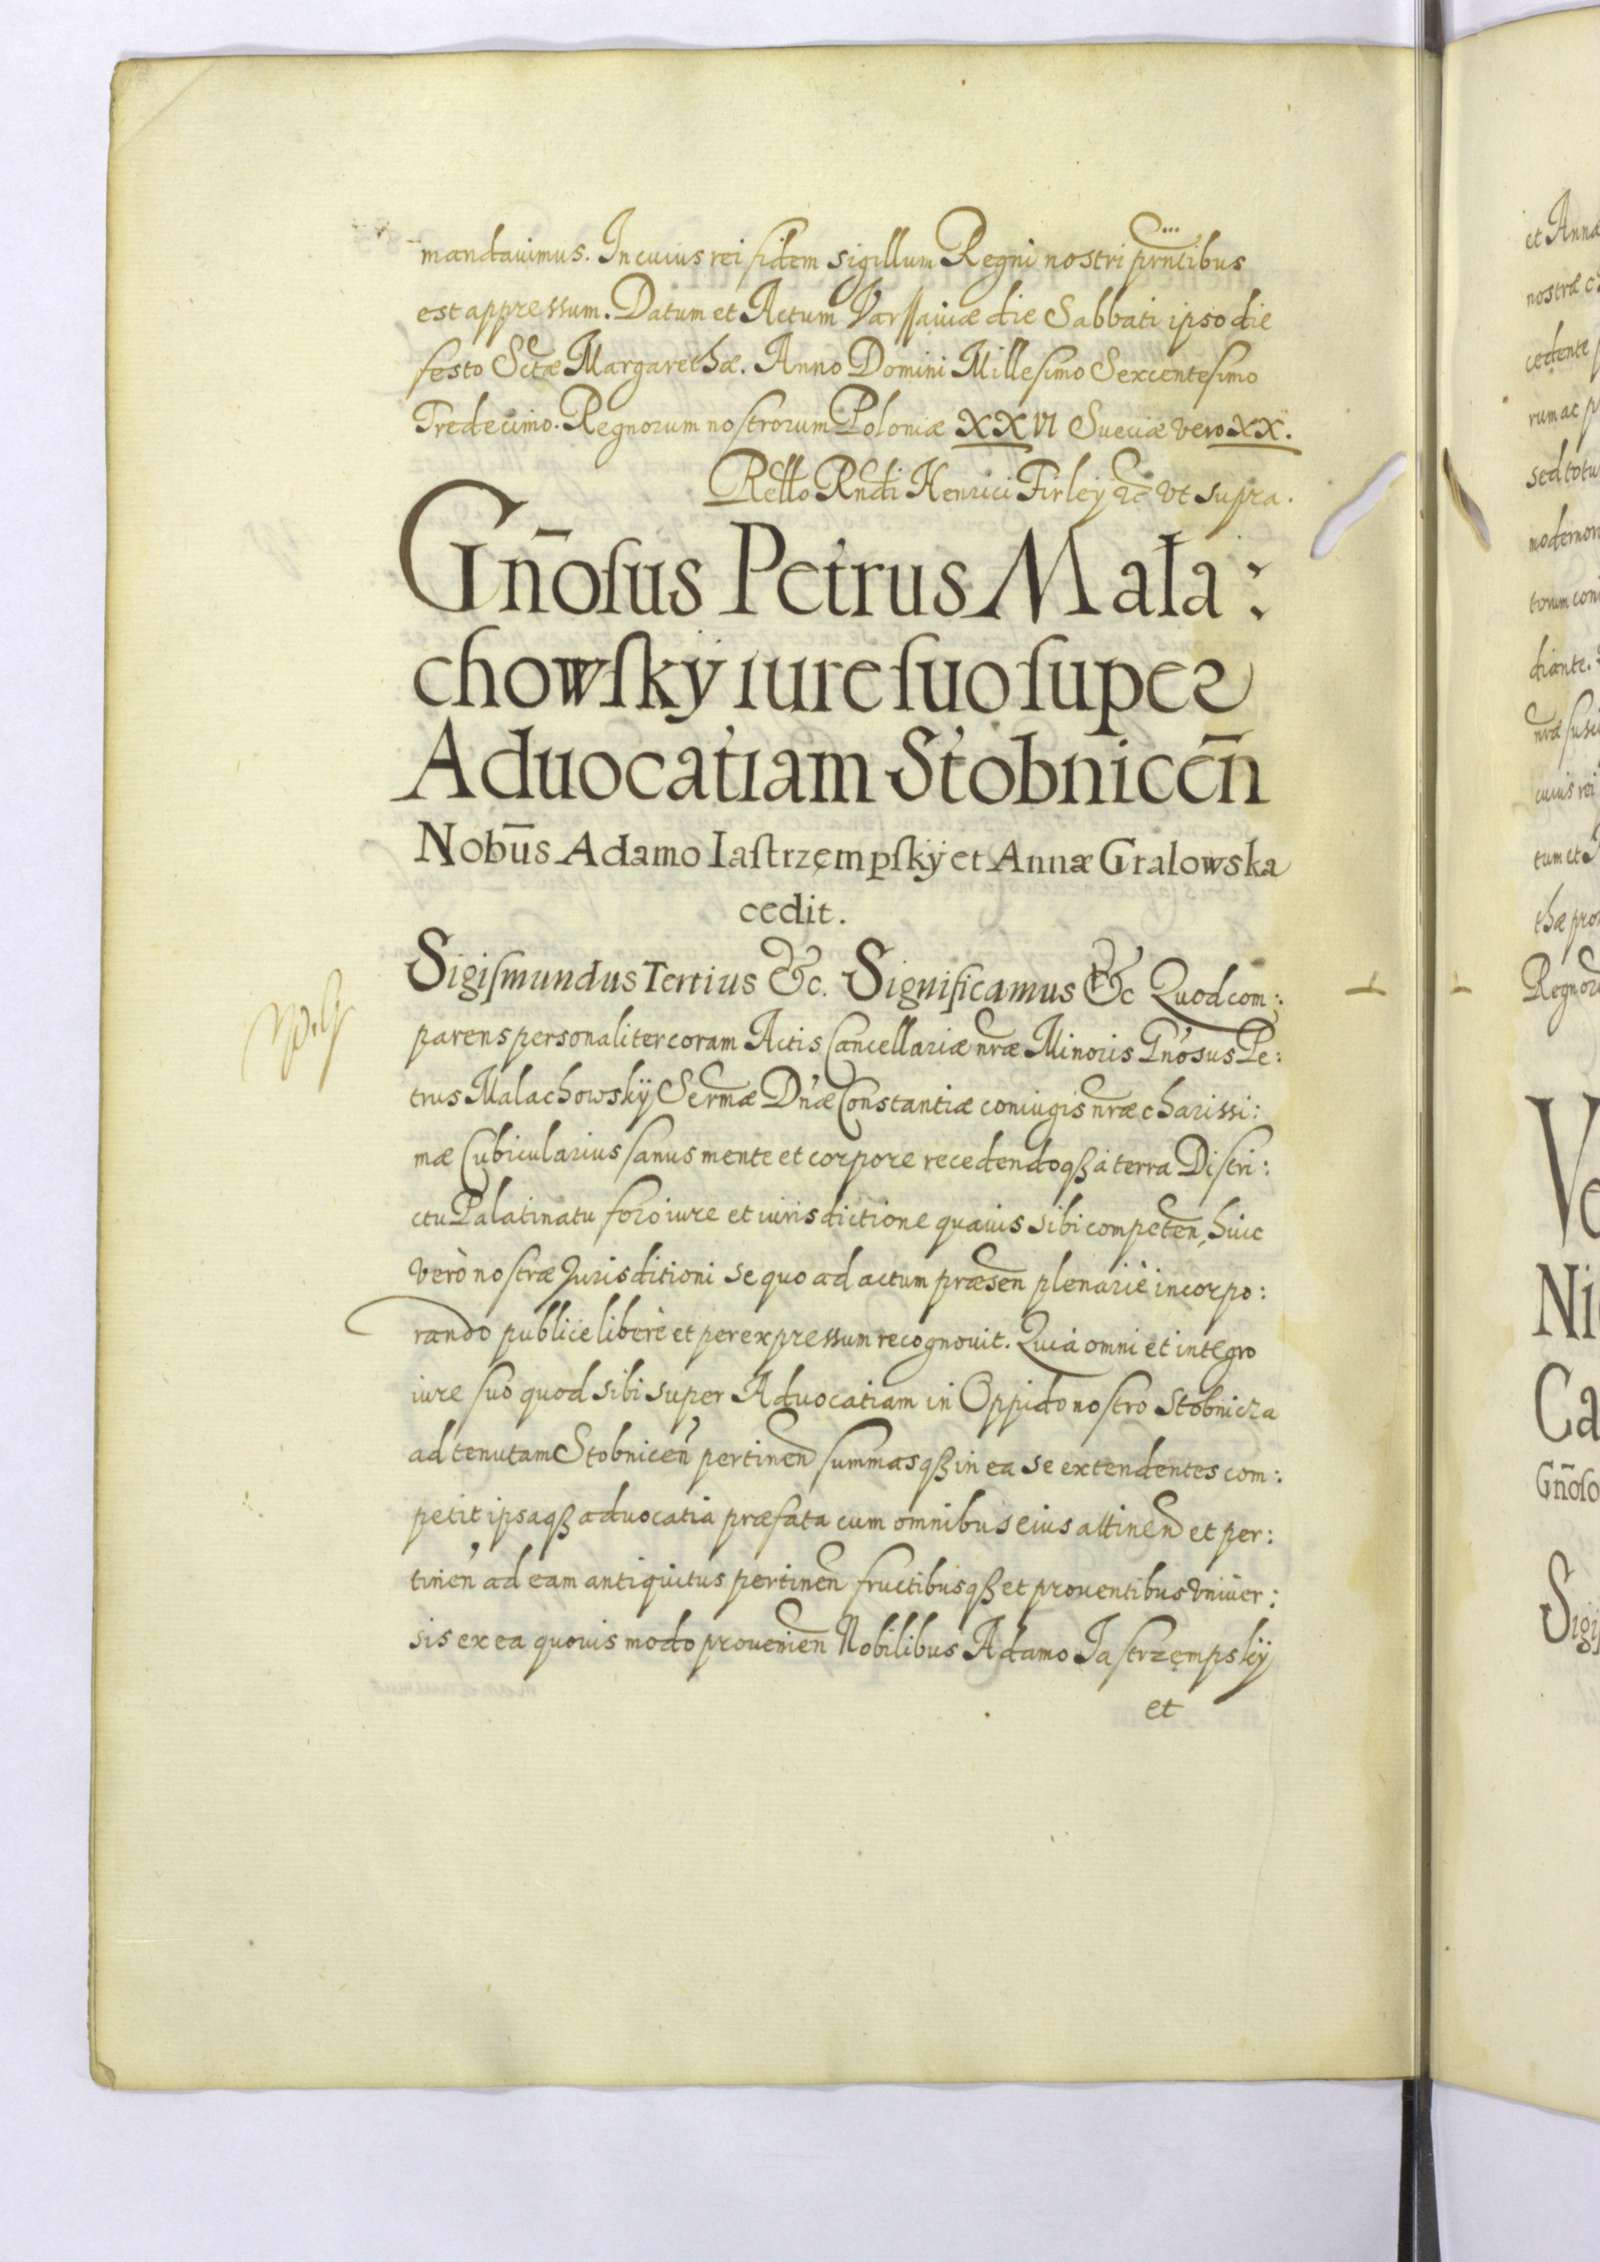 mandauimus. In cuius rei fidem sigillum Regni nostri prntibus
est appressum. Datum et Actum Varssaiuiæ die Sabbati ipso die
festo Sctæ Margarethæ. Anno Domini Millesimo Sexcentesimo
Tredecimo. Regnorum nostrorum Poloniæ XXVI Sueciæ vero XX.
Rello Rndi Henrici Firley &c vt supra.
Gn̄oſus Petrus Mala:
chowſkÿ iure ſuo ſuper
Aduocatiam Stobnicen̄
Nobūs Adamo Iaſtrzęmpſkÿ et Annæ Gralowska
cedit.
Sigiſmundus Tertius &c. Significamus &c Quod com:
parens personaliter coram Actis Cancellariæ nræ Minoris Gn̄osus Pe:
trus Malachowskÿ Sermæ Dnæ Constantiæ coniugis nræ charissi:
mæ Cubicularius sanus mente et corpore recedendoqß à terra Distri:
ctu Palatinatu foro iure et iurisdictione quauis sibi competen, huic
verò nostræ Jurisditioni se quo ad actum præsen plenariè incorpo:
rando publicè liberè et per expressum recognouit. Quià omni et integro
iure suo quod sibi super Aduocatiam in Oppido nostro Stobnicza
ad tenutam Stobnicen pertinen summasqß in ea se extendentes com:
petit ipsaqß aduocatia præfata cum omnibus eius attinen et per:
tinen ad eam antiquitus pertinen fructibusqß et prouentibus vniuer:
sis ex ea quouis modo prouenien Nobilibus Adamo Jastrzęmpskÿ
et
et Annæ
nostræ
cedente
rum ac
sed totu
modernor
torum
diante.
nræ
cuius rei
tum et
thæ
Regnor
Ve
Ni
Ca
Gn̄oſo
Sigiſ